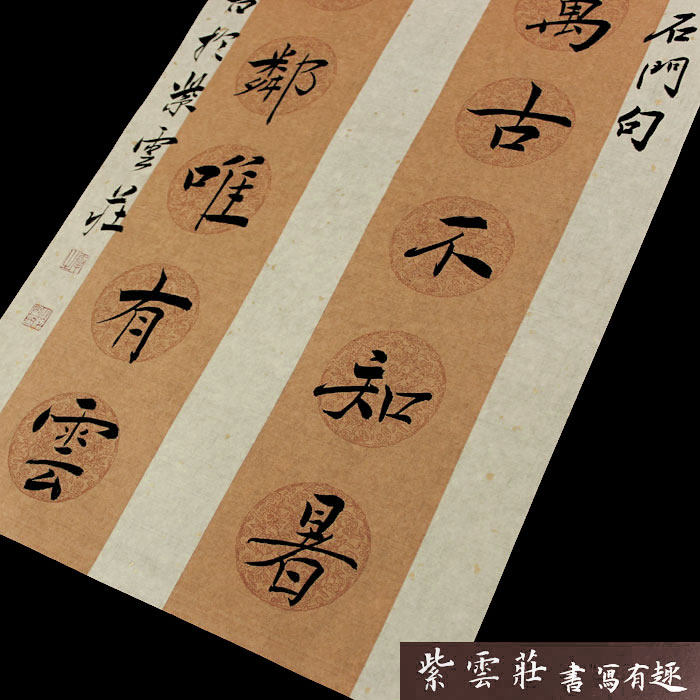 石門句
萬古不知暑
鄰唯有雲
於紫雲莊
紫雲莊 書寫有趣